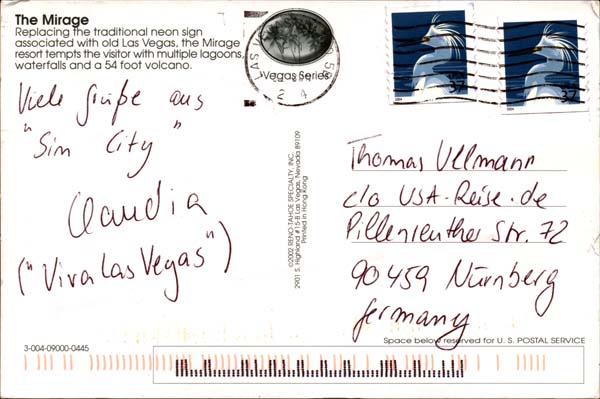 The Mirage
Replacing the traditional neon sign
associated with old Las Vegas, the Mirage
resort tempts the visitor with multiple lagoons,
waterfalls and a 54 foot volcano.
Vegas Series
37
37
Viele Grüße aus
"Sin City"
Claudia
("Viva Las Vegas")
©2002 RENO-TAHOE SPECIALTY, INC.
2901 S. Highland #15-B Las Vegas, Nevada 89109
Printed in Hong Kong
Thomas Ullmann
c/o USA-Reise.de
Pillenreuther Str. 72
90459 Nürnberg
Germany
3-004-09000-0445
Space below reserved for U. S. POSTAL SERVICE